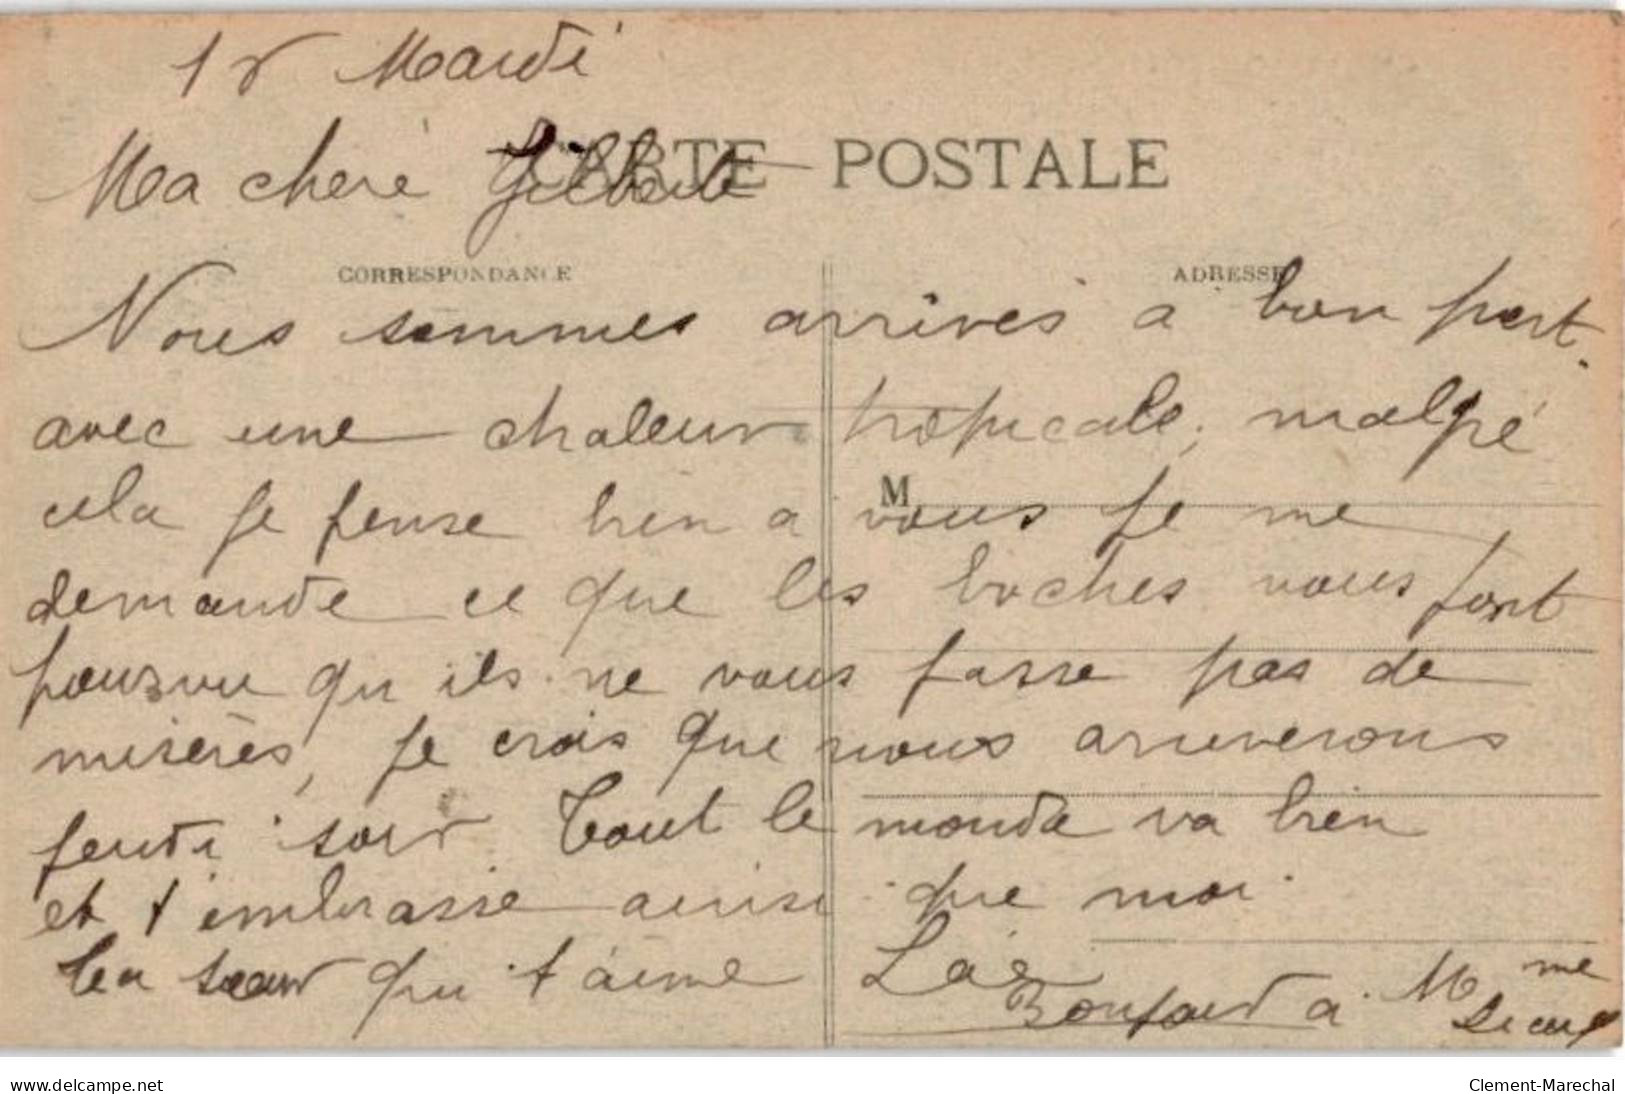 18 Mardi
Ma cheré Gilberte
CARTE POSTALE
CORRESPONDANCE
ADRESSE
Nous sommes arrivés a bon port.
avec une chaleur tropicale, malgré
cela je pense bien a vous je me
M
demande ce que les boches vous font
pourvu qu ils ne vous fasse pas de
miserès, je crois que nous arriverons
jeudi soir Tout le monde va bien
et t'embrasse ainsi que moi
ta sœur qui t'aime
Bonjour a Mme
www.delcampe.net
Clement-Marechal